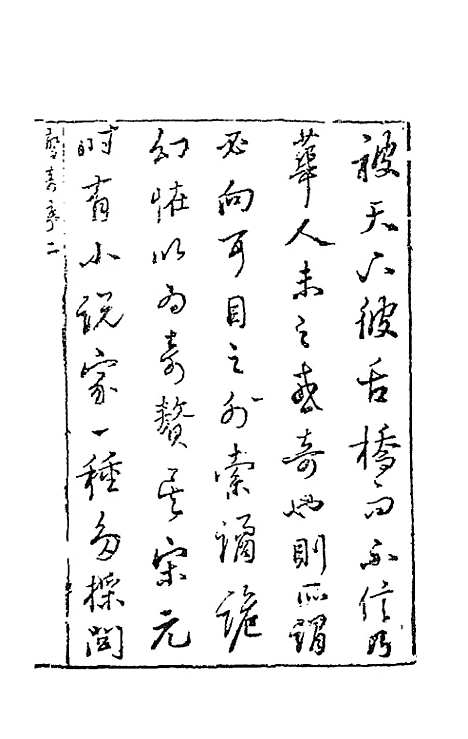 被天下彼舌橋而不信乃
華人未之或奇也則所謂
必向耳目之外索譎詭
幻怪以為奇贅矣宋元
時有小說家一種多採閭
驚奇序二